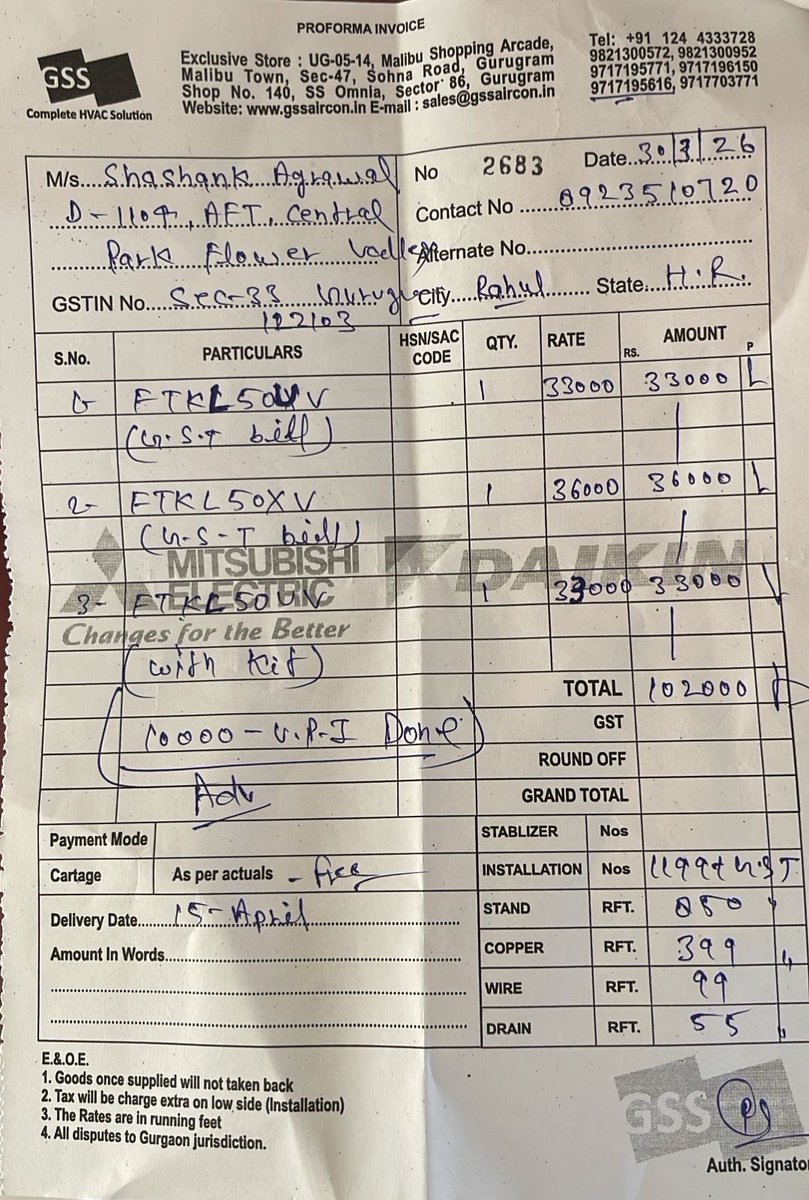 PROFORMA INVOICE
GSS
Complete HVAC Solution
Exclusive Store : UG-05-14, Malibu Shopping Arcade,
Malibu Town, Sec-47, Sohna Road, Gurugram
Shop No. 140, SS Omnia, Sector 86, Gurugram
Website: www.gssaircon.in E-mail : sales@gssaircon.in
Tel: +91 124 4333728
9821300572, 9821300952
9717195771, 9717196150
9717195616, 9717703771
M/s....Shashank Agrawal
D-1104, AFT, Central
Park Flower
GSTIN No....Sec-33
122103
No 2683 Date..30/3/26
Contact No ......8923510720
Alternate No......
City....Rahul....... State...H.R.
S.No. PARTICULARS HSN/SAC CODE QTY. RATE AMOUNT
RS. P
1- FTKL50UV 1 33000 33000
(G.S.T bill)
2- FTKL50XV 1 36000 36000
(G-S-T bill)
MITSUBISHI ELECTRIC DAIKIN
3- FTKL50UV 1 33000 33000
Changes for the Better
(with Kit)
TOTAL 102000
10000 - U.P.I Done
Adv
GST
ROUND OFF
GRAND TOTAL
Payment Mode
Cartage As per actuals - free
Delivery Date....15-April
Amount In Words......
STABLIZER Nos
INSTALLATION Nos 1199+G.S.T
STAND RFT. 850
COPPER RFT. 399
WIRE RFT. 99
DRAIN RFT. 55
E.&O.E.
1. Goods once supplied will not taken back
2. Tax will be charge extra on low side (Installation)
3. The Rates are in running feet
4. All disputes to Gurgaon jurisdiction.
GSS
Auth. Signator